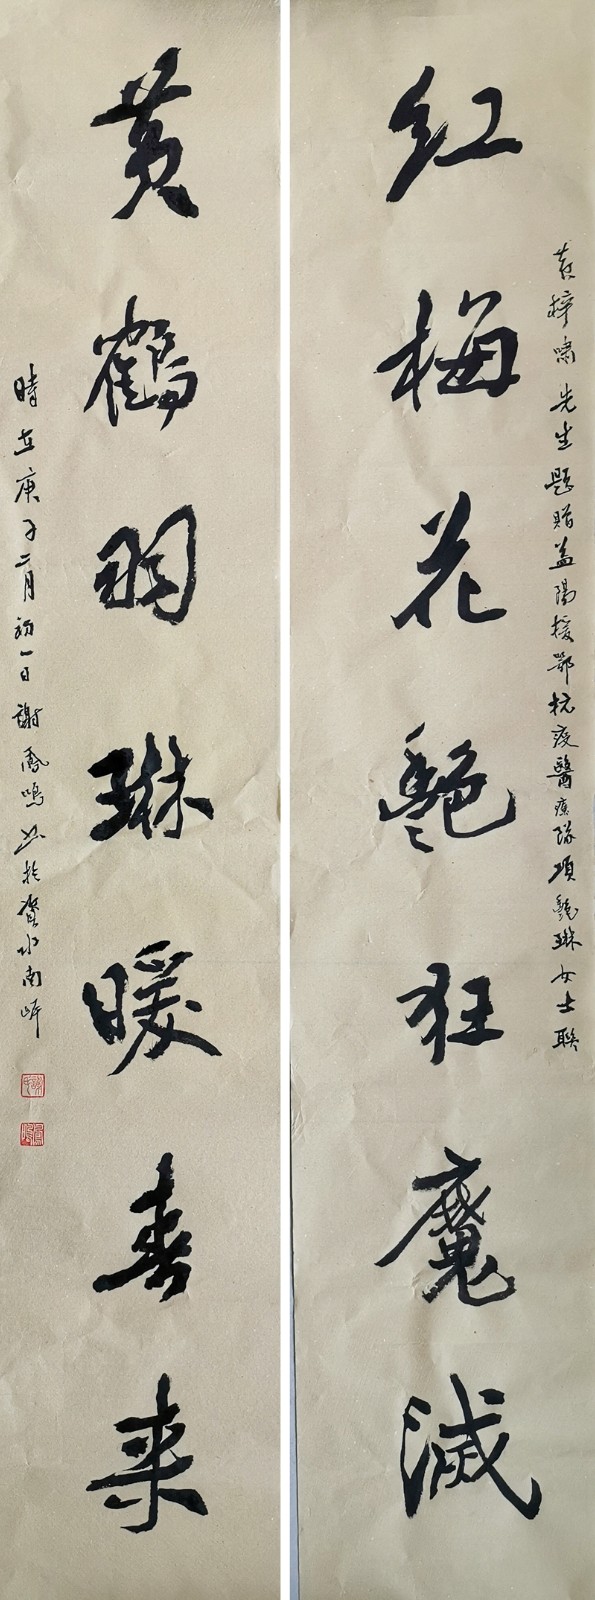 黄梓啸先生题赠益陽援鄂抗疫醫療隊項艷琳女士聯
红梅花艷狂魔滅
黄鹤羽琳暖春来
時在庚子二月初一日謝鳳鳴书於資水南岸